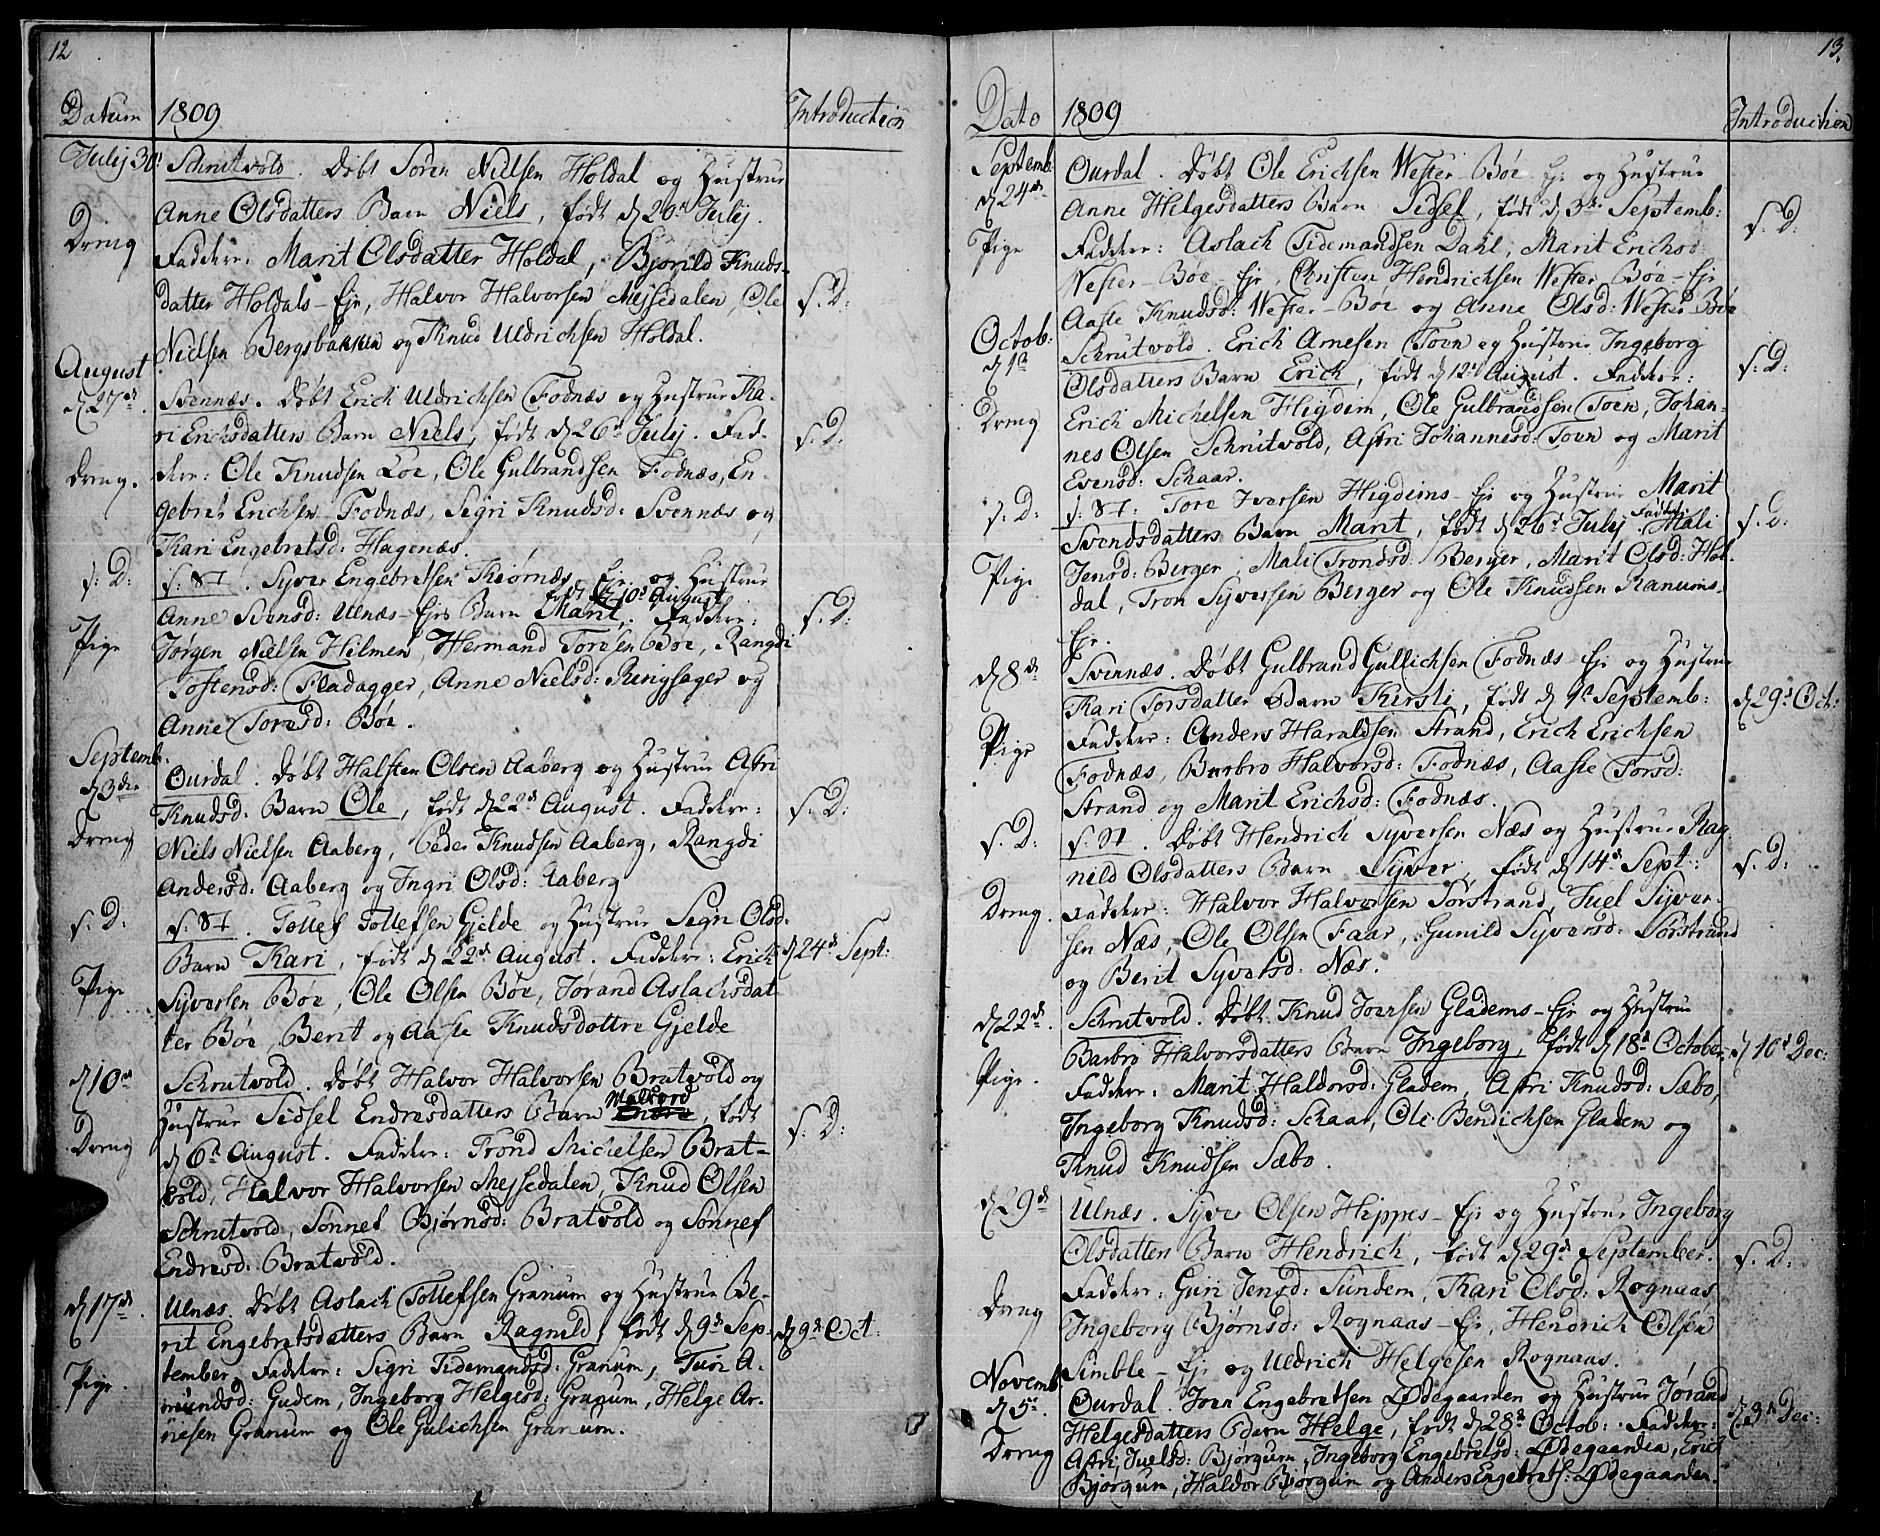 12
Datum 1809 Introduction
Julij 30 Schrutvold. Døbt Søren Nielsen Holdal og Hustrue
Anne Olsdatters Barn Niels, født d 20d Julij.
Dreng Faddere: Marit Olsdatter Holdal, Bjørild Knuds-
datter Holdals-Eje, Halvor Halvorsen Mejsedalen, Ole s. D:
Nielsen Bergsbakken og Knud Uldrichsen Holdal.
August
d 27de. Svennæs. Døbt Erich Uldrichsen Fodnæs og Hustrue Ka-
ri Erichsdatters Barn Niels, født d 26d Julij. Fad- s. D:
Dreng. dere: Ole Knudsen Loe, Ole Gulbrandsen Fodnæs, En-
gebret Erichsen Fodnæs, Sigri Knudsd: Svennæs og
Kari Engebretsd: Hagenæs.
s: D: s: St. Syver Engebretsen Kiørnæs Eje og Hustrue
født d 10d August
Anne Svensd: Ulnæs-Ejes Barn Marit. Faddere: s. D:
Pige Jørgen Nielsen Hilmen, Hermand Toresen Bøe, Rangdi
Tostensd: Fladagger, Anne Nielsd: Ringsager og
Anne Toresd: Bøe.
Septemb.
d 3die Ourdal. Døbt Halsten Olsen Aaberg og Hustrue Astri
Knudsd: Barn Ole, født d 22d August. Faddere: s. D:
Dreng Niels Nielsen Aaberg, Peder Knudsen Aaberg, Rangdi
Andersd: Aaberg og Ingri Olsd: Aaberg
s. D: s. St. Tollef Tollefsen Gjelde og Hustrue Segri Olsd:
Barn Kari, født d 22d August. Faddere: Erich d 24d Sept:
Pige Syversen Bøe, Ole Olsen Bøe, Jørand Aslachsdat-
ter Bøe, Berit og Aaste Knudsdottre Gjelde
d 10d Schrutvold. Døbt Halvor Halvorsen Bratvold og
Hustrue Sidsel Endresdatters Barn Endre, født s. D:
Dreng d 6d August. Faddere: Trond Michelsen Brat-
vold, Halvor Halvorsen Mejsedalen, Knud Olsen
Schrutvold, Sønnef Bjørnsd: Bratvold og Sønnef
Endresd: Bratvold.
d 17de. Ulnæs. Døbt Aslach Tollefsen Granum og Hustrue Be-
rit Engebretsdatters Barn Ragnild, født d 9d Sep- d 9d Oct:
tember. Faddere: Sigri Tidemandsd: Granum, Turi A-
Pige. mundsd: Gudem, Ingeborg Helgesd: Granum, Helge Ar-
nesen Granum og Ole Gulichsen Granum.
13.
Dato 1809 Introduction
Septemb: Ourdal. Døbt Ole Erichsen Wester-Bøe Eje og Hustrue
d 24de Anne Helgesdatters Barn Sidsel, født d 3die Septemb: s. D:
Pige Faddere: Aslach Tidemandsen Dahl, Marit Erichsd
Wester-Bøe-Eje, Christen Hendrichsen Wester Bøe-Eje
Aaste Knudsd: Wester-Boe og Anne Olsd: Wester Bøe
Octob: Schrutvold. Erich Arnesen Toen og Hustrue Ingeborg
d 1te Olsdatters Barn Erich, født d 12d August. Faddere: s. D:
Dreng Erich Michelsen Higdem, Ole Gulbrandsen Toen, Johan-
nes Olsen Schrutvold, Astri Johannesd: Toen og Marit
Evensd: Schaar.
s: D: s: St: Tore Iversen Higdems-Eje og Hustrue Marit
Svendsdatters Barn Marit, født d 26d Julij. Fadder: Mali s. D:
Pige Jensd: Berger, Mali Trondsd: Berger, Marit Olsd: Hol-
dal, Tron Syversen Berger og Ole Knudsen Ranums-
Eje.
d 8de Svennæs. Døbt Gulbrand Gullichsen Fodnæs Eje og Hustrue
Kari Torsdatter Barn Kirsti, født d 1d Septemb: d 29d Oct:
Pige Faddere: Anders Haraldsen Strand, Erich Erichsen
Fodnæs, Barbro Halvorsd: Fodnæs, Aaste Torsd:
Strand og Marit Erichsd: Fodnæs.
s. D: s. St. Døbt Hendrich Syversen Næs og Hustrue Rag-
nild Olsdatters Barn Syver, født d 14d Sept: s. D:
Dreng. Faddere: Halvor Halvorsen Sørstrand, Juel Syver-
sen Næs, Ole Olsen Faar, Gunild Syversd: Sørstrand
og Berit Syversd: Næs.
d 22de. Schrutvold. Døbt Knud Iversen Gladems-Eje og Hustrue
Barbro Halvorsdatters Barn Ingeborg, født d 18d October. d 10d Dec:
Pige. Faddere: Marit Haldorsd: Gladem, Astri Knudsd: Sæbo,
Ingeborg Knudsd: Schaar, Ole Bendichsen Gladem og
Knud Knudsen Sæbo.
d 29de Ulnæs. Syver Olsen Hippes-Eje og Hustrue Ingeborg
Olsdatters Barn Hendrich, født d 29d September. s. D:
Dreng Faddere: Guri Jensd: Sundem, Kari Olsd: Rognaas
Ingeborg Bjørnsd: Rognaas-Eje, Hendrich Olsen
Simble-Eje og Uldrich Helgesen Rognaas.
Novemb. Ourdal. Iver Engebretsen Ødegaarden og Hustrue Jørand
d 5te. Helgesdatters Barn Helge, født d 28d Octob: Faddere: d 3d Dec:
Dreng Astri Juelsd: Bjørgum, Ingeborg Engebretsd: Ødegaarden, Erich
Bjørgum, Haldor Bjorgum og Anders Engebrets: Ødegaarden.